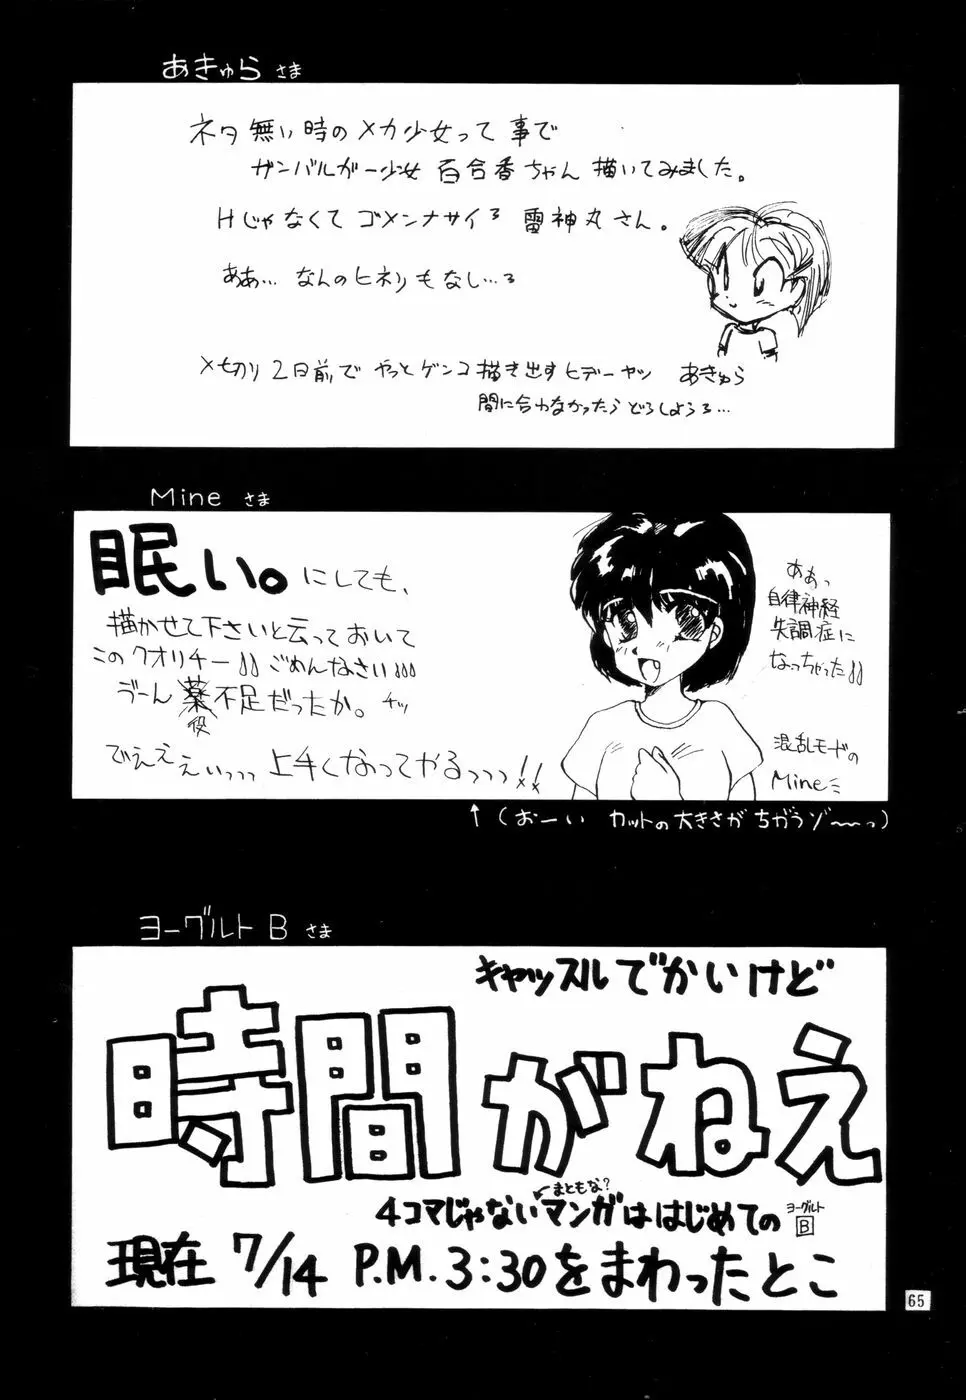 あきゅら さま
ネタ無い時のメカ少女って事で
ザンバルガー少女 百合香ちゃん 描いてみました。
Hじゃなくて ゴメンナサイろ 雷神丸さん。
ああ… なんのヒネリもなし…ろ
〆切り2日前で やっとゲンコ描き出すヒデーヤツ あきゅら
間に合わなかったらどうしようろ…
Mine さま
眠い。にしても、
描かせて下さいと云っておいて
このクオリチー!! ごめんなさい!!!
ゔーん 薬不足だったか。チッ
役
でぇえぇぃっっっ 上手くなってやるっっっ!!
ああっ
自律神経
失調症に
なっちゃった!!
混乱モードの
Mine
↑(おーい カットの大きさがちがうゾ〜〜っ)
ヨーグルトB さま
キャッスルでかいけど
時間がねえ
まともな?
4コマじゃないマンガははじめての
ヨーグルト
B
現在 7/14 P.M.3:30をまわったとこ
65